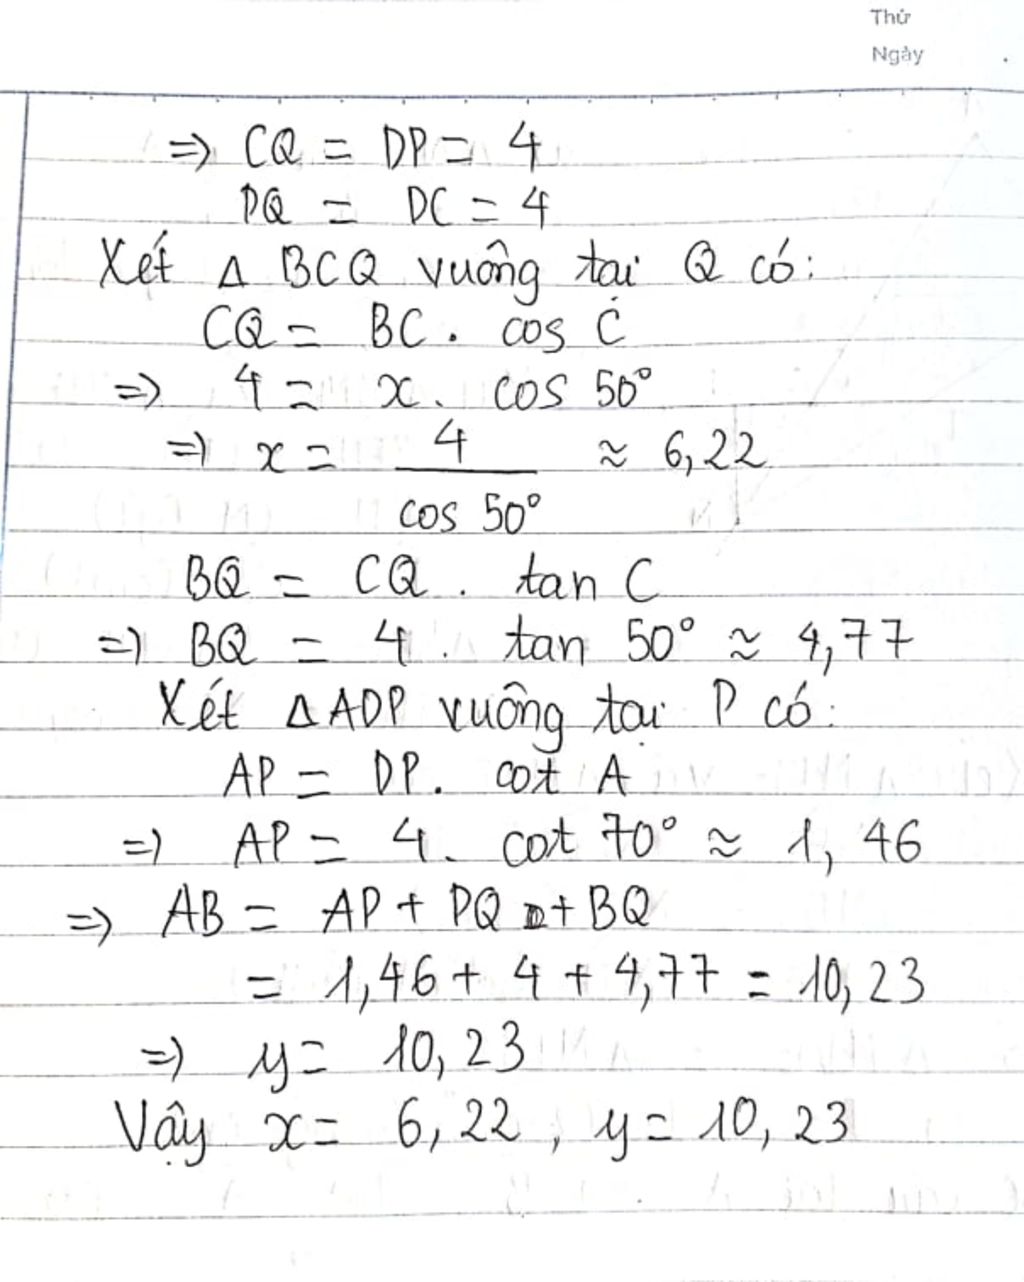 Thứ
Ngày
=> CQ = DP = 4
PQ = DC = 4
Xét Δ BCQ vuông tại Q có:
CQ = BC . cos C
=> 4 = x . cos 50°
=> x = 4 / cos 50° ≈ 6,22
BQ = CQ . tan C
=> BQ = 4 . tan 50° ≈ 4,77
Xét Δ ADP vuông tại P có:
AP = DP . cot A
=> AP = 4 . cot 70° ≈ 1,46
=> AB = AP + PQ + BQ
= 1,46 + 4 + 4,77 = 10,23
=> y = 10,23
Vậy x = 6,22 , y = 10,23